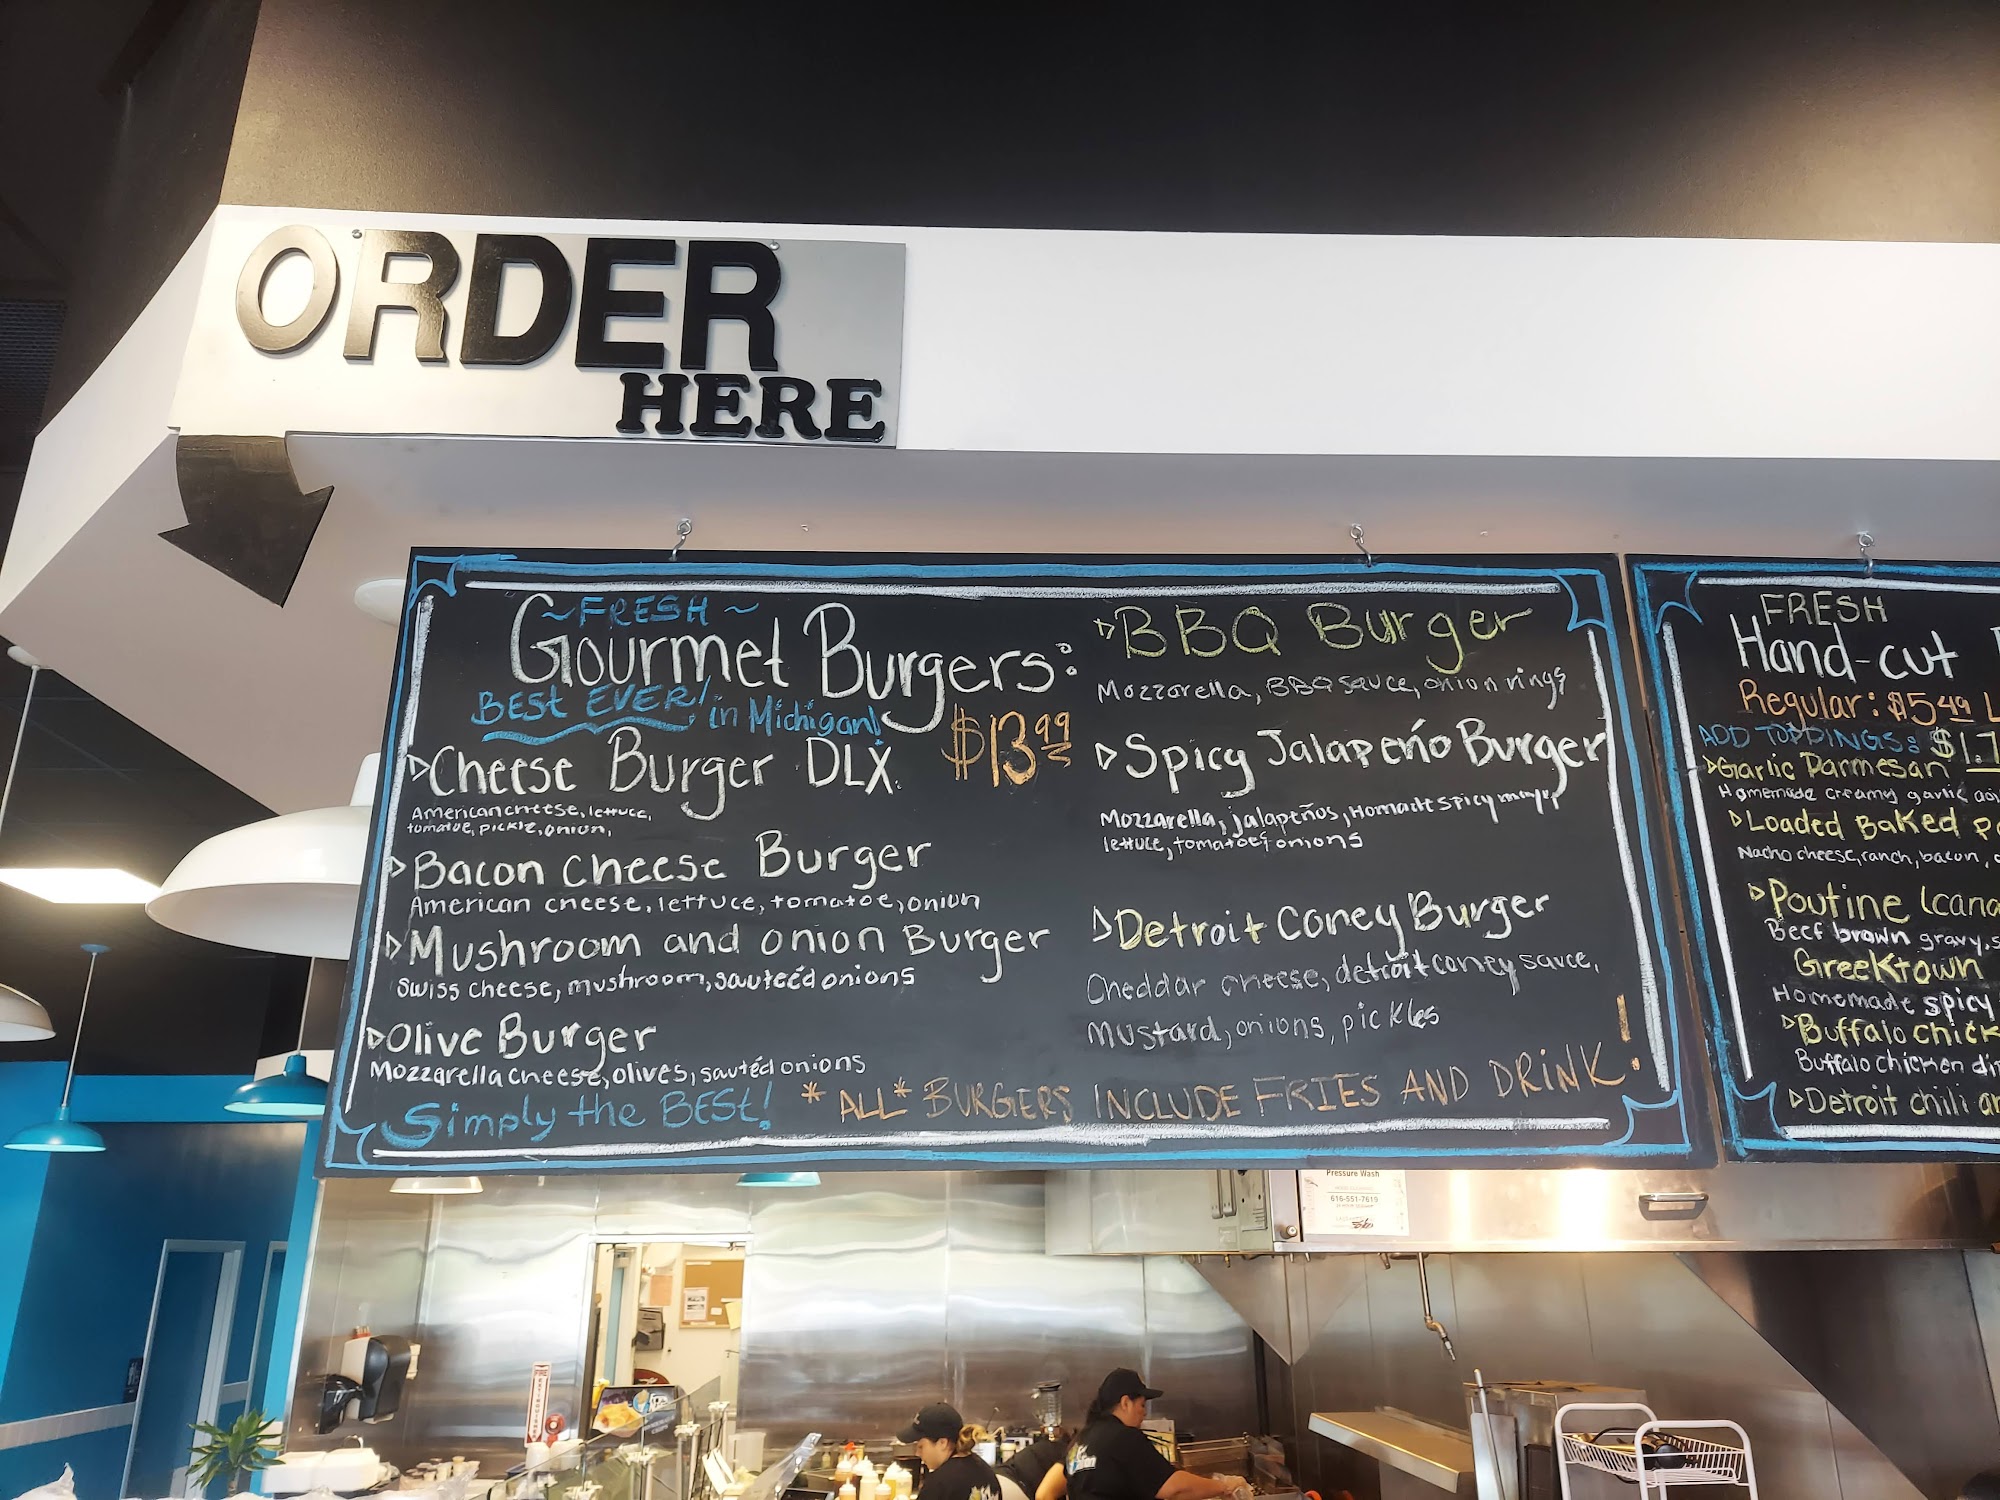 ORDER
HERE
~FRESH~
Gourmet Burgers:
BEST EVER! in Michigan!
$13.99
Cheese Burger DLX.
American cheese, lettuce,
tomatoe, pickle, onion,
Bacon Cheese Burger
American cheese, lettuce, tomatoe, onion
Mushroom and onion Burger
Swiss cheese, mushroom, sauteéd onions
Olive Burger
Mozzarella cheese, olives, sautéd onions
Simply the BEST!
BBQ Burger
Mozzorella, BBQ sauce, onion rings
Spicy Jalapeńo Burger
Mozzarella, jalapeños, Homade spicy mayo,
lettuce, tomatoe & onions
Detroit Coney Burger
Cheddar cheese, detroit coney sauce,
mustard, onions, pickles
*ALL* BURGERS INCLUDE FRIES AND DRINK!
FRESH
Hand-cut
Regular: $5.49
ADD TOPPINGS: $1.7
Garlic Parmesan
Homemade creamy garlic
Loaded Baked
Nacho cheese, ranch, bacon,
Poutine (cana
Beef brown gravy,
Greektown
Homemade spicy
Buffalo chick
Buffalo chicken di
Detroit chili
Pressure Wash
616-551-7619
FIRE